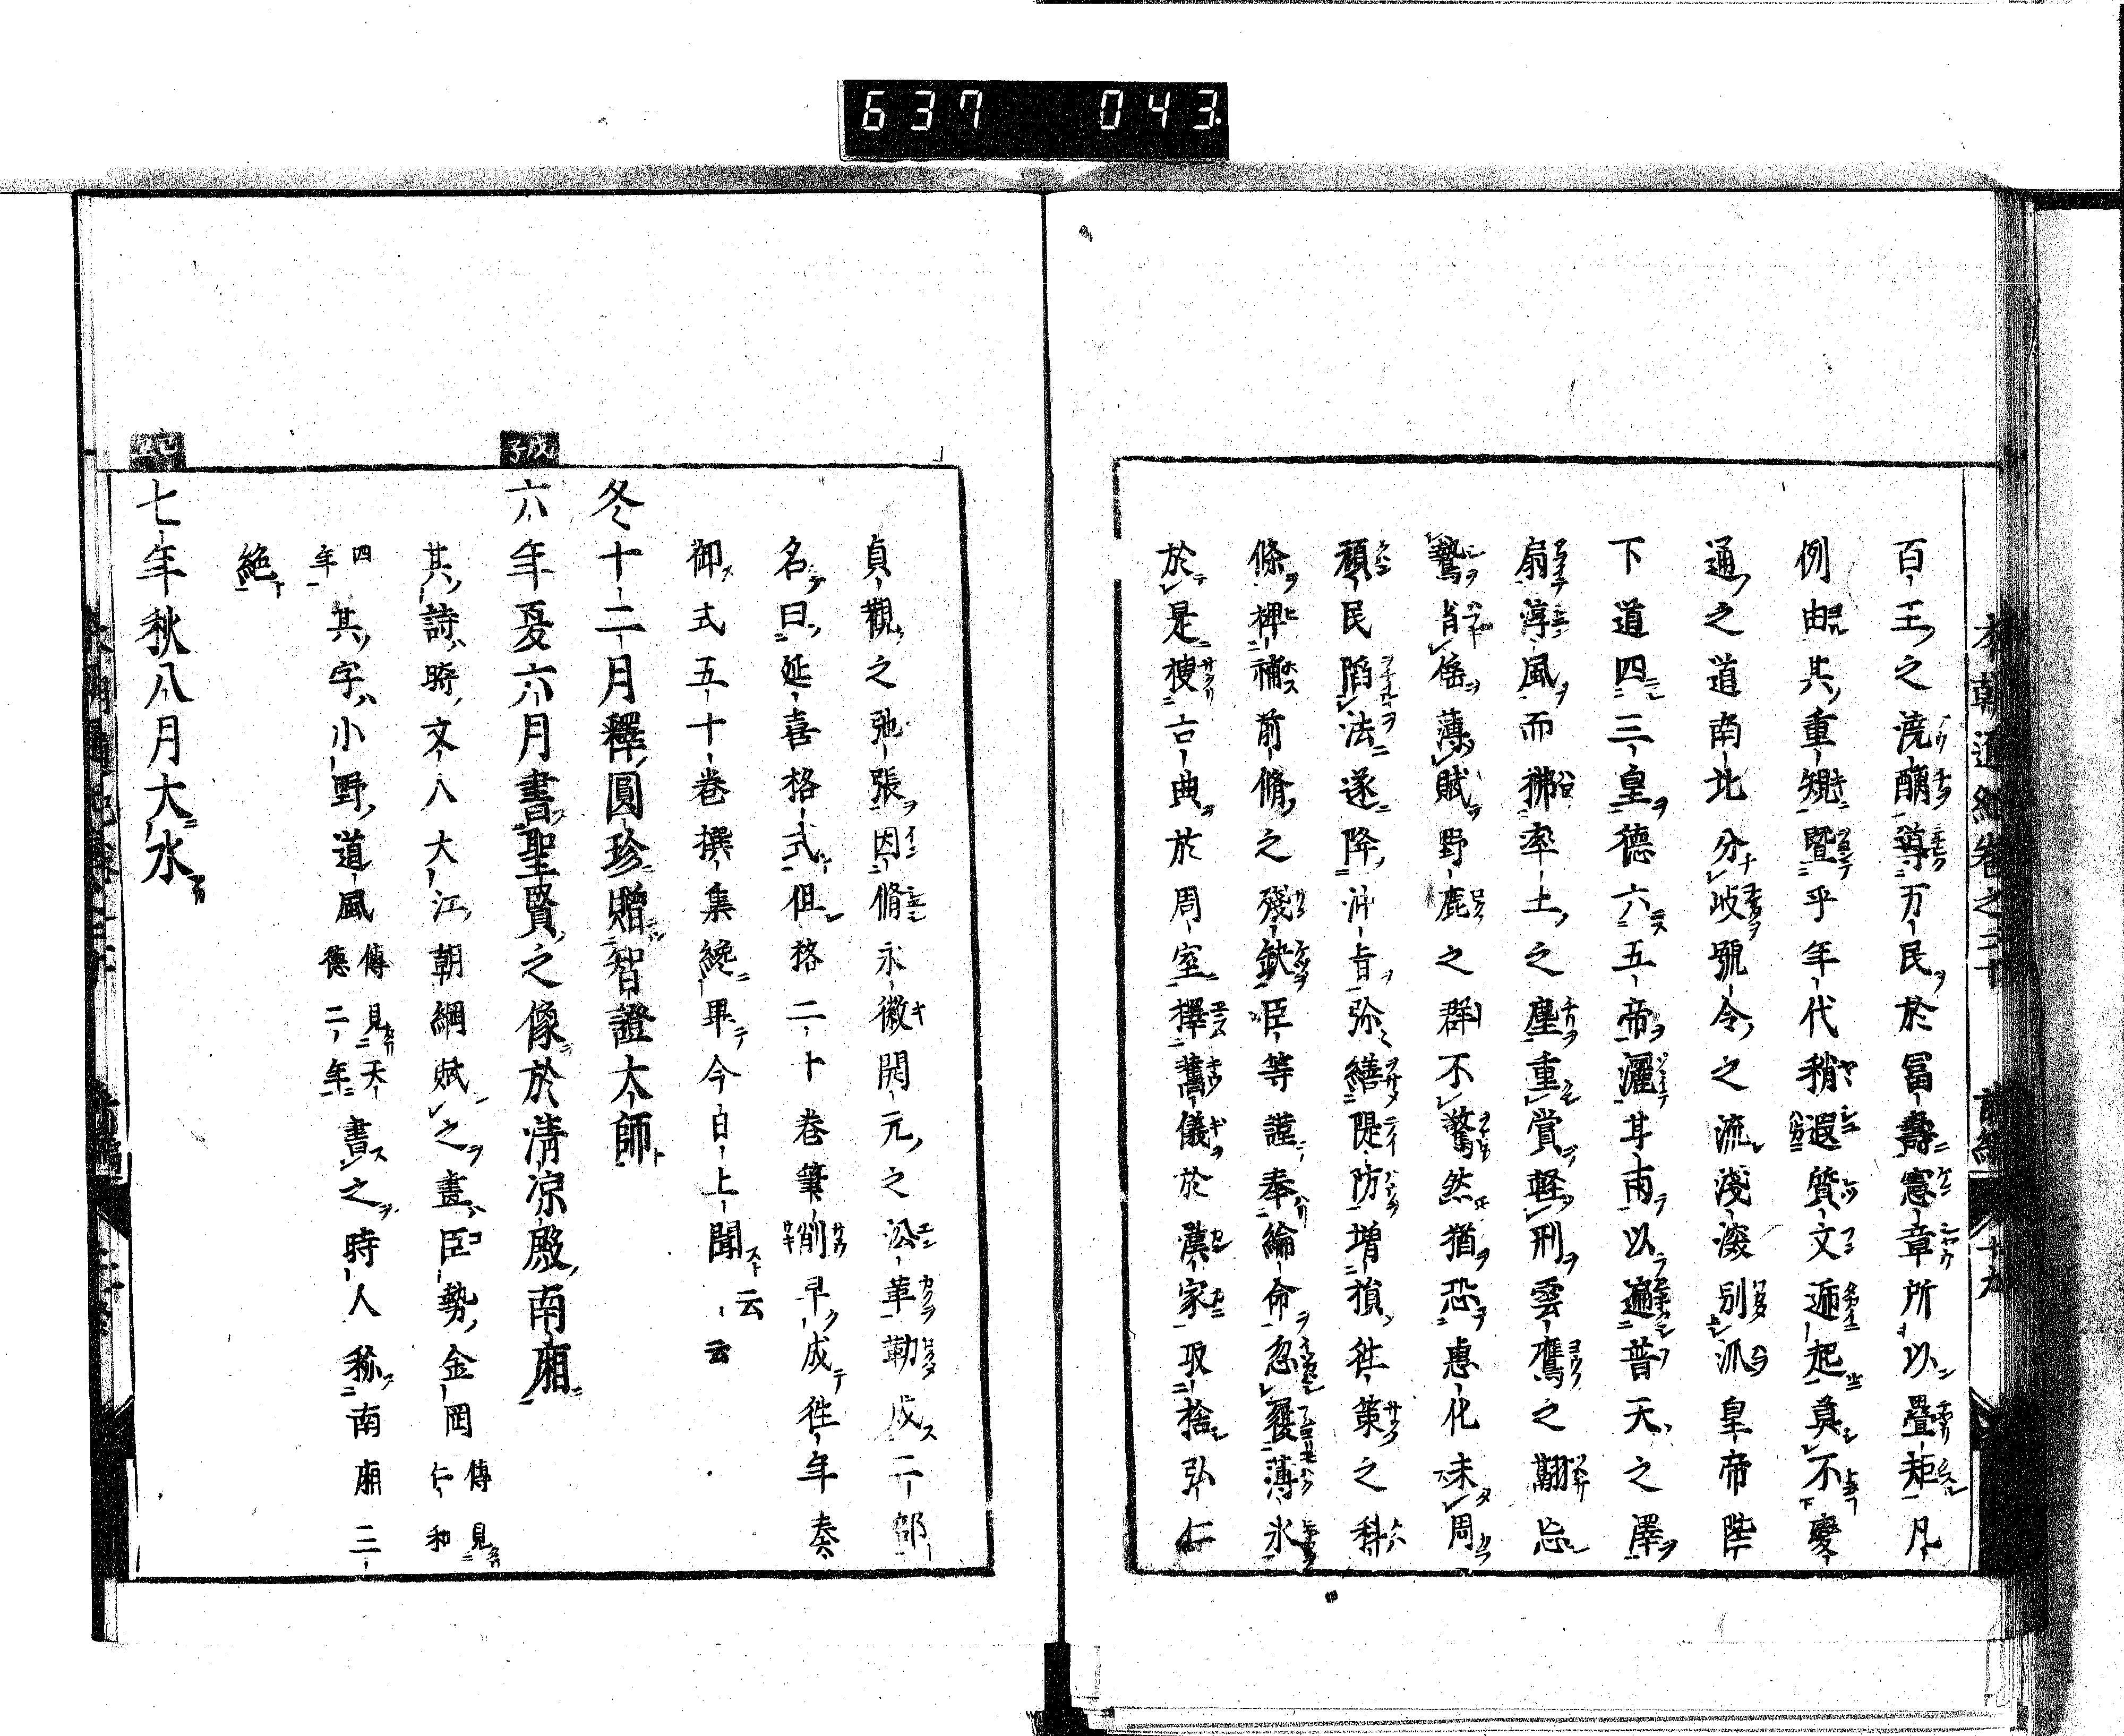 637 043
本朝通紀卷之二十 前編 十九
百王之澆醨導万民於冨壽憲章所以疊矩凡
例由其重䂓暨乎年代稍遐質文逓起莫不變
通之道南北分岐號令之流淺深別派皇帝陛
下道四三皇德六五帝灑其雨以遍普天之澤
扇淳風而拂率土之塵重賞軽刑雲鷹之翮忘
鷙肖徭薄賦野鹿之群不驚然猶恐惠化未周
頑民陷法遂降沖旨弥繕隄防増損徃策之科
條裨補前脩之殘缺臣等謹奉綸命忽履薄氷
於是捜古典於周室擇舊儀於漢家取捨弘仁
貞觀之弛張因脩永徽開元之沿革勒成二部
名曰延喜格式但格二十卷筆削早成徃年奏
御式五十卷撰集纔畢今日上聞云云
冬十二月釋圓珍贈智證大師
戊子
六年夏六月書聖賢之像於清凉殿南廂
其詩時文人大江朝綱賦之畫臣勢金岡傳見仁和
四年其字小野道風傳見天德二年書之時人称南廂三
絶
己丑
七年秋八月大水